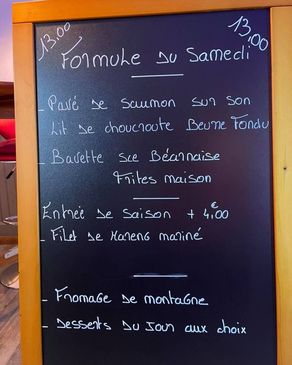 13,00 13,00
Formule du Samedi
- Pavé de Saumon sur son
Lit de choucroute Beurre Fondu
- Bavette sce Béarnaise
Frites maison
Entrée de Saison + 4,00€
- Filet de Hareng mariné
- Fromage de montagne
- Desserts du Jour aux choix